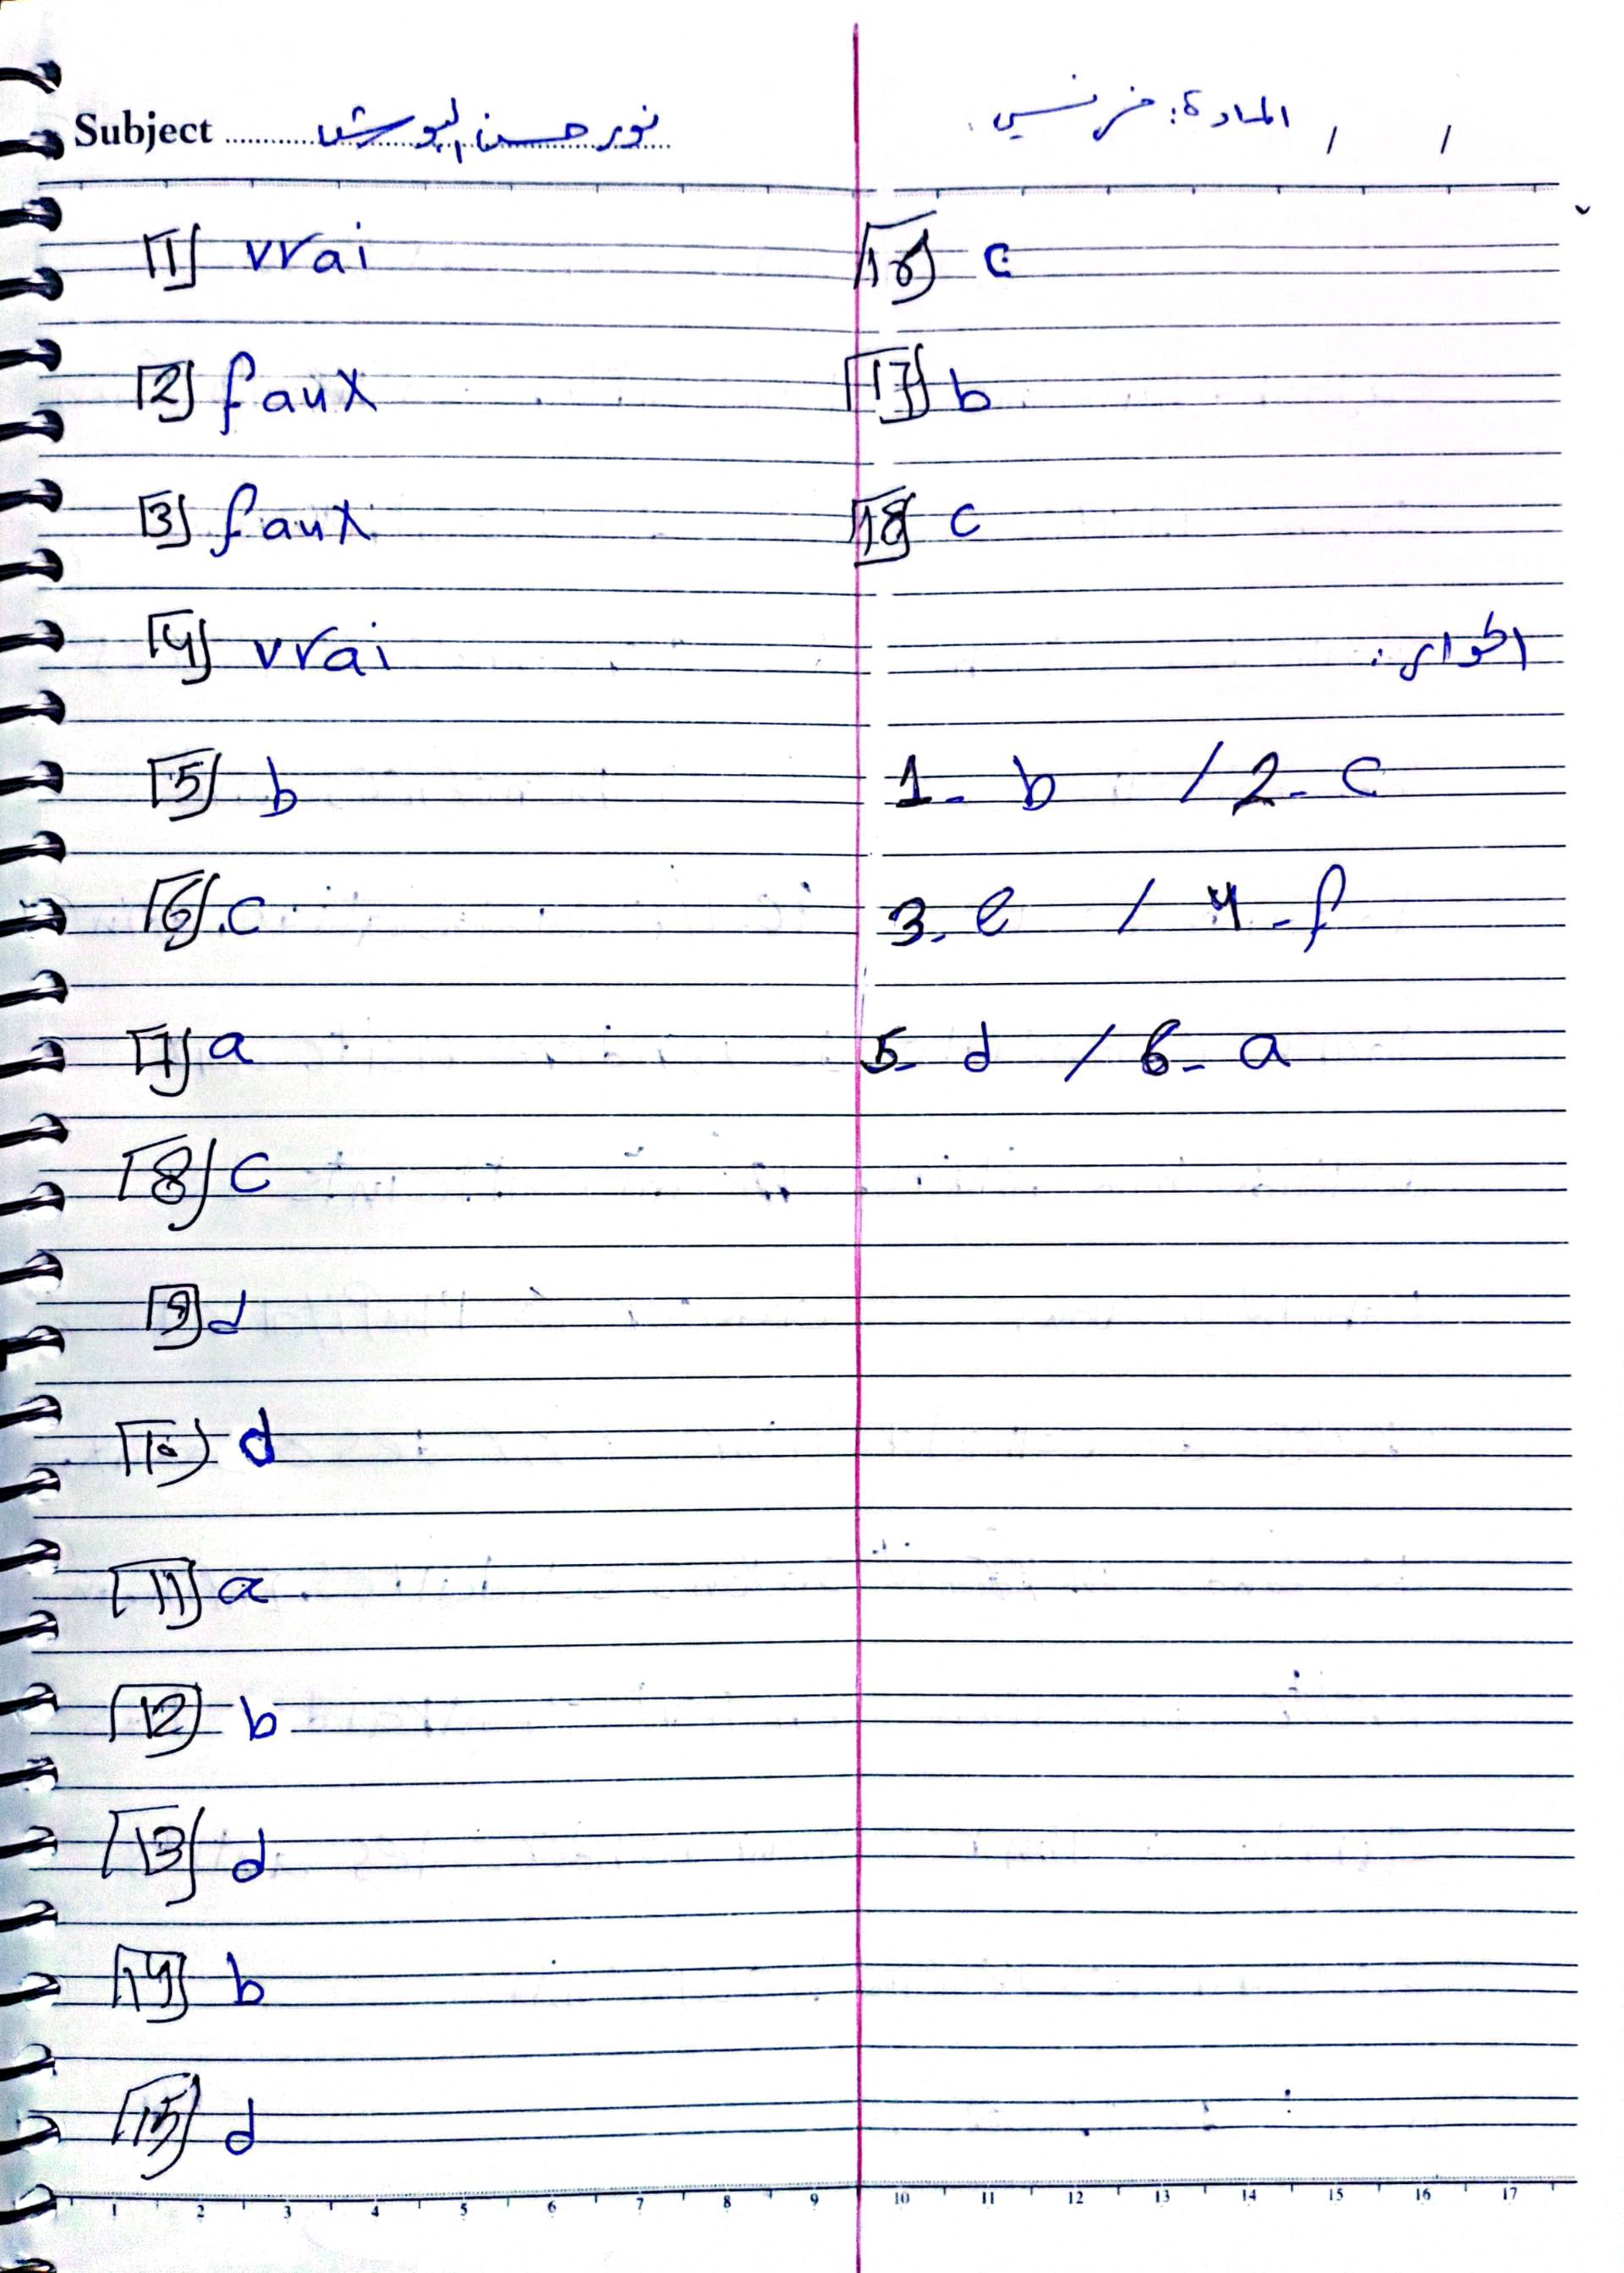 Subject نور حسن
المادة: فرنسي
1 vrai
2 faux
3 faux
4 vrai
5 b
6 c
7 a
8 c
9 d
10 d
11 a
12 b
13 d
14 b
15 d
16 c
17 b
18 c
الحوار:
1- b / 2- c
3- e / 4- f
5- d / 6- a
1 2 3 4 5 6 7 8 9 10 11 12 13 14 15 16 17